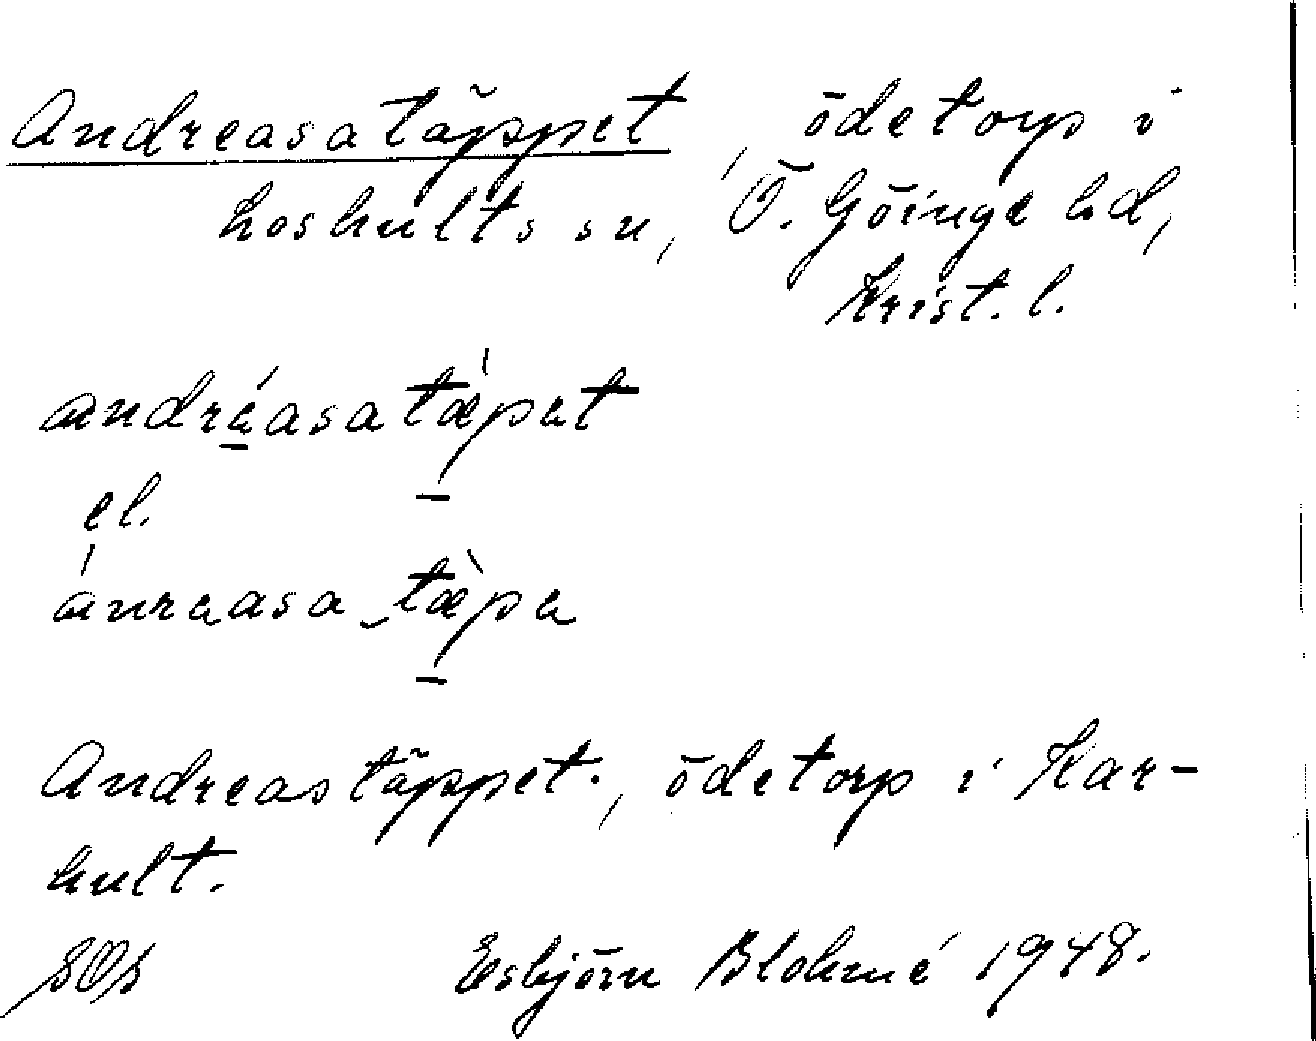 Andreasatäppet, ödetorp i
Loshults sn, Ö. Göinge hd,
Krist. l.
andréasatæ̀pat
el.
ánraasa-tæ̀pa
Andreastäppet., ödetorp i Kar-
hult.
SOS Esbjörn Blohmé 1948.